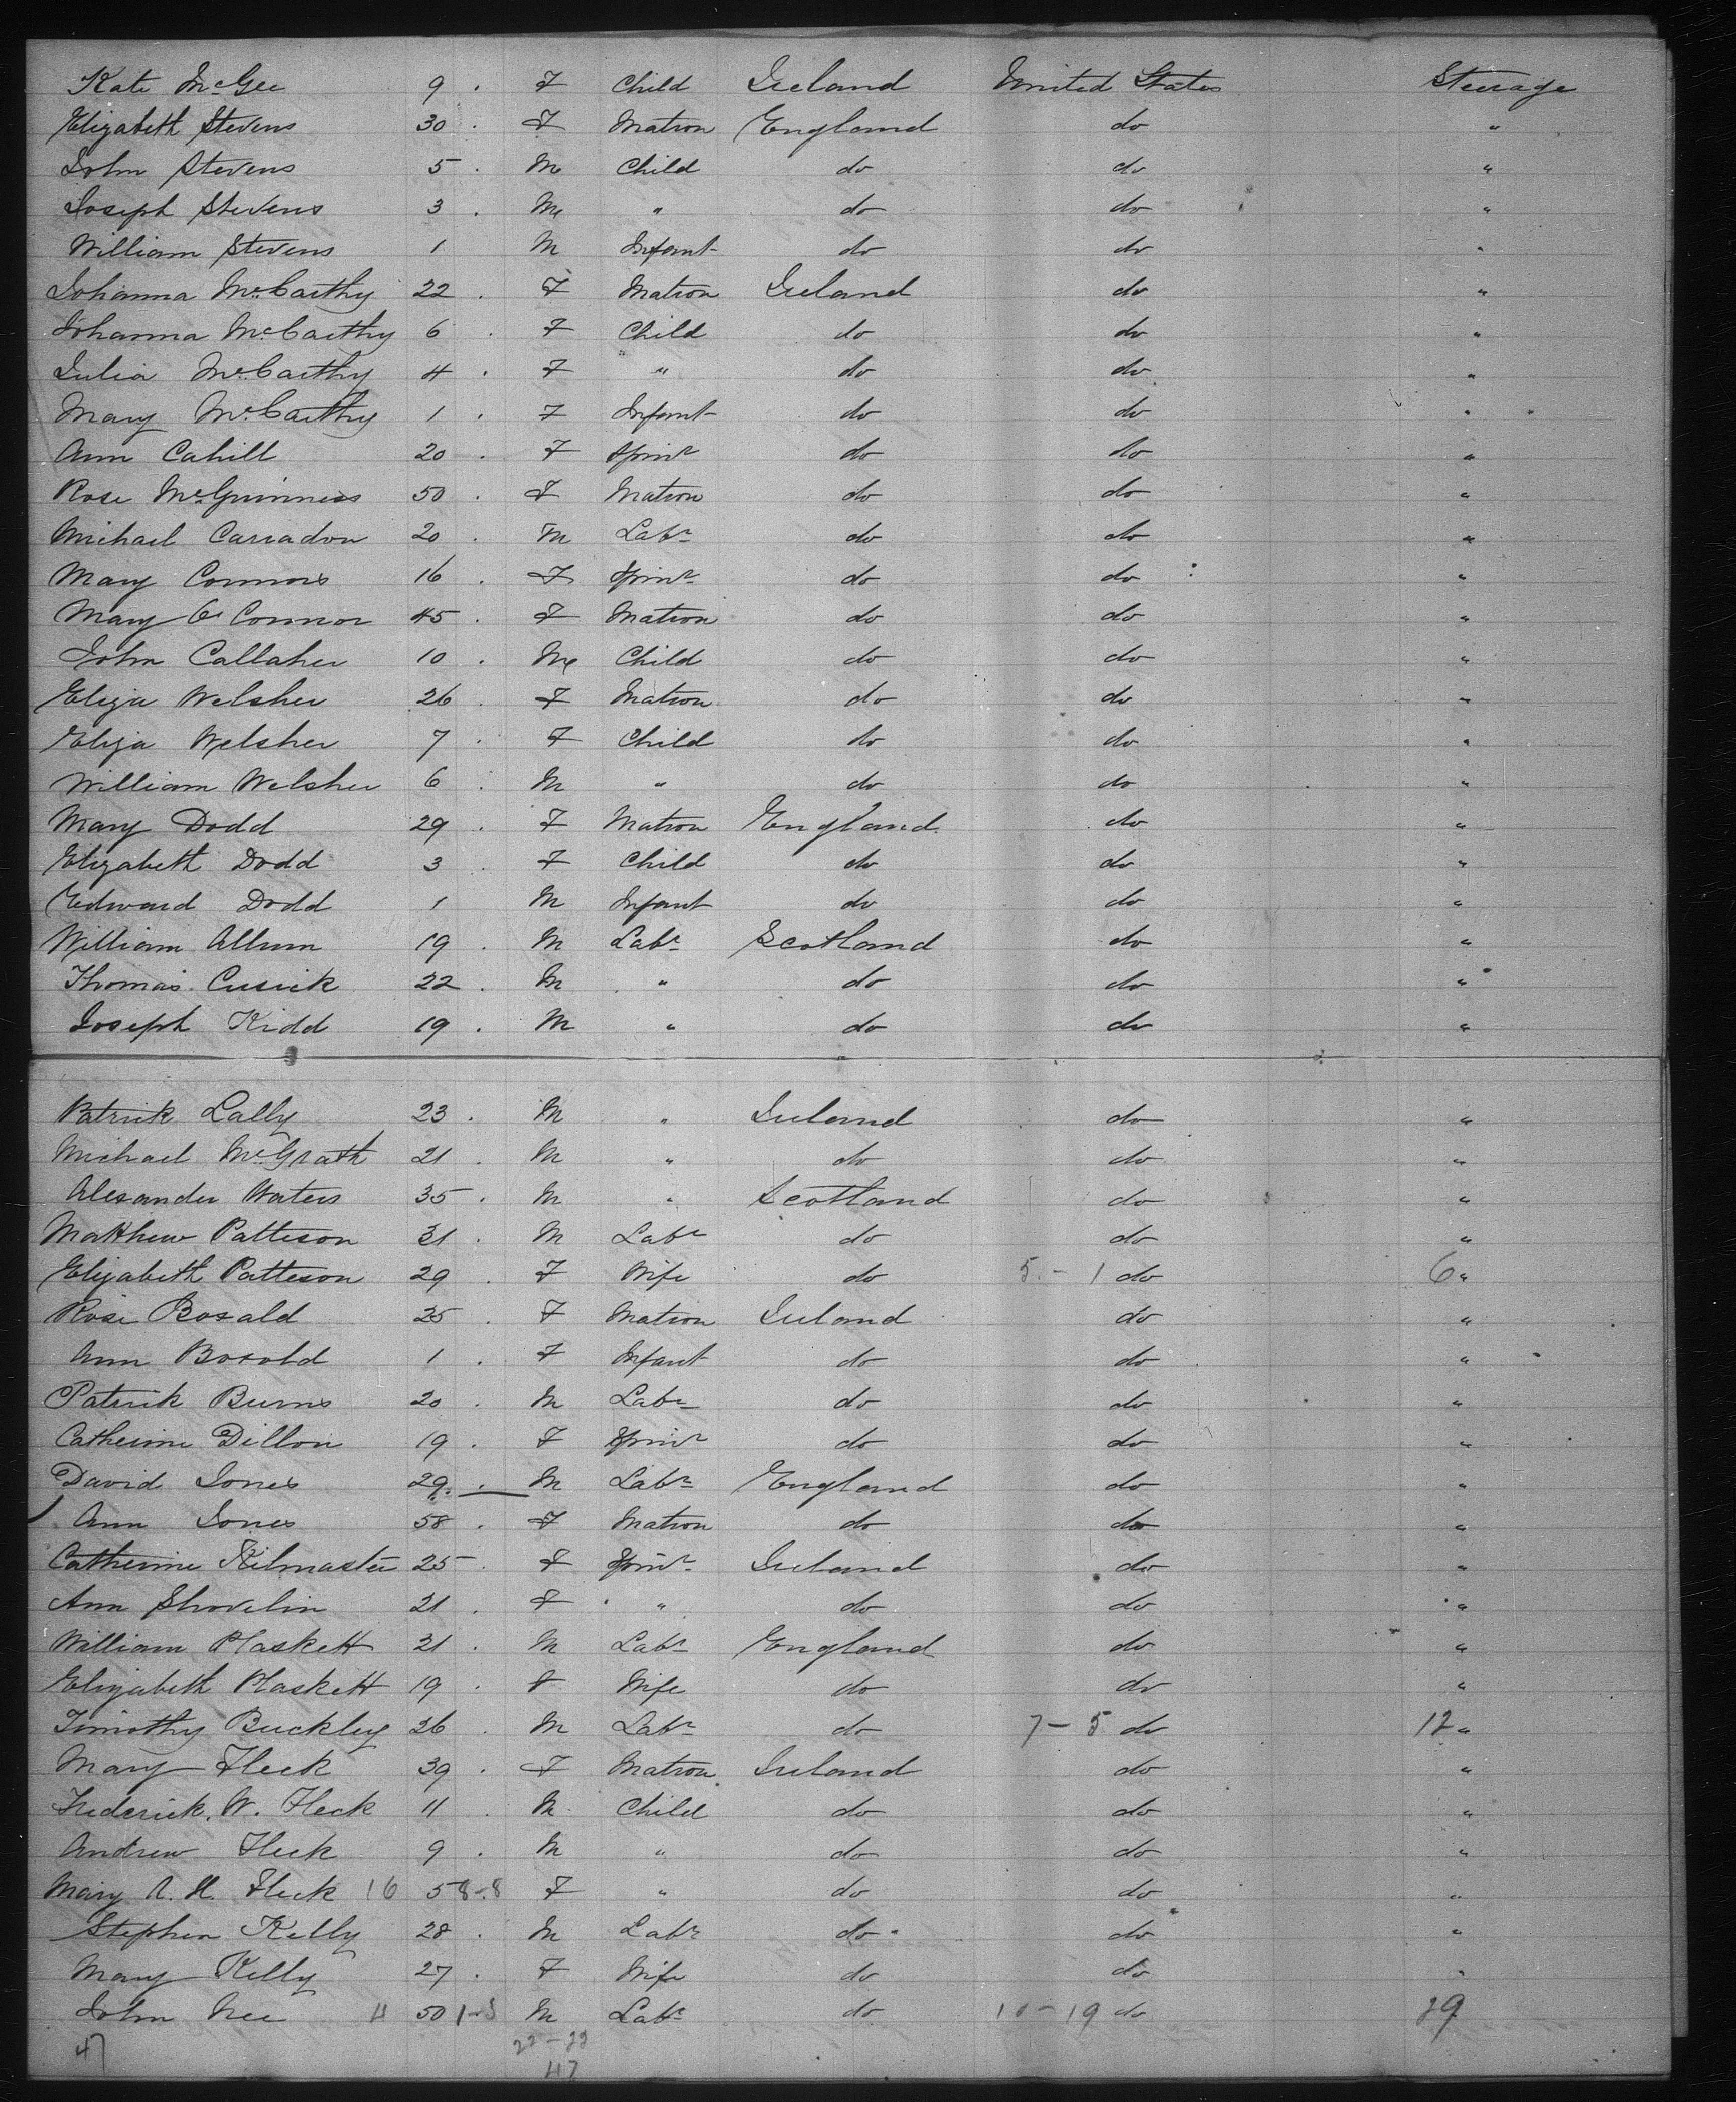 Kate McGee 9 . F Child Ireland United States Steerage
Elizabeth Stevens 30 . F Matron England do "
John Stevens 5 . M Child do do "
Joseph Stevens 3 . M " do do "
William Stevens 1 M Infant do do "
Johanna McCarthy 22 . F Matron Ireland do "
Johanna McCarthy 6 . F Child do do "
Julia McCarthy 4 . F " do do "
Mary McCarthy 1 . F Infant do do "
Ann Cahill 20 . F Spinr do do "
Rose McGuinness 50 . F Matron do do "
Michael Carradon 20 . M Labr do do "
Mary Connors 16 . F Spinr do do "
Mary O'Connor 45 . F Matron do do "
John Callaher 10 . M Child do do "
Eliza Welsher 26 . F Matron do do "
Eliza Welsher 7 . F Child do do "
William Welsher 6 . M " do do "
Mary Dodd 29 . F Matron England do "
Elizabeth Dodd 3 . F Child do do "
Edward Dodd 1 M Infant do do "
William Allum 19 . M Labr Scotland do "
Thomas Cusick 22 . M " do do "
Joseph Kidd 19 . M " do do "
Patrick Lally 23 . M " Ireland do "
Michael McGrath 21 . M " do do "
Alexander Waters 35 . M " Scotland do "
Matthew Patteson 31 . M Labr do do "
Elizabeth Patteson 29 . F Wife do 5 - 1 do 6 "
Rose Boxald 25 . F Matron Ireland do "
Ann Boxald 1 . F Infant do do "
Patrick Burns 20 . M Labr do do "
Catherine Dillon 19 . F Spinr do do "
David Jones 29 . M Labr England do "
Ann Jones 58 . F Matron do do "
Catherine Kilmaster 25 . F Spinr Ireland do "
Ann Shovelin 21 . F " do do "
William Plaskett 21 . M Labr England do "
Elizabeth Plaskett 19 . F Wife do do "
Timothy Buckley 26 . M Labr do 7 - 5 do 12 "
Mary Fleck 39 . F Matron Ireland do "
Frederick W. Fleck 11 . M Child do do "
Andrew Fleck 9 . M " do do "
Mary A. H. Fleck 16 5 8-8 F " do do "
Stephen Kelly 28 . M Labr do do "
Mary Kelly 27 . F Wife do do "
John Nee 11 50 1-3 M Labr do 10 - 19 do 29
47 22 - 22
47